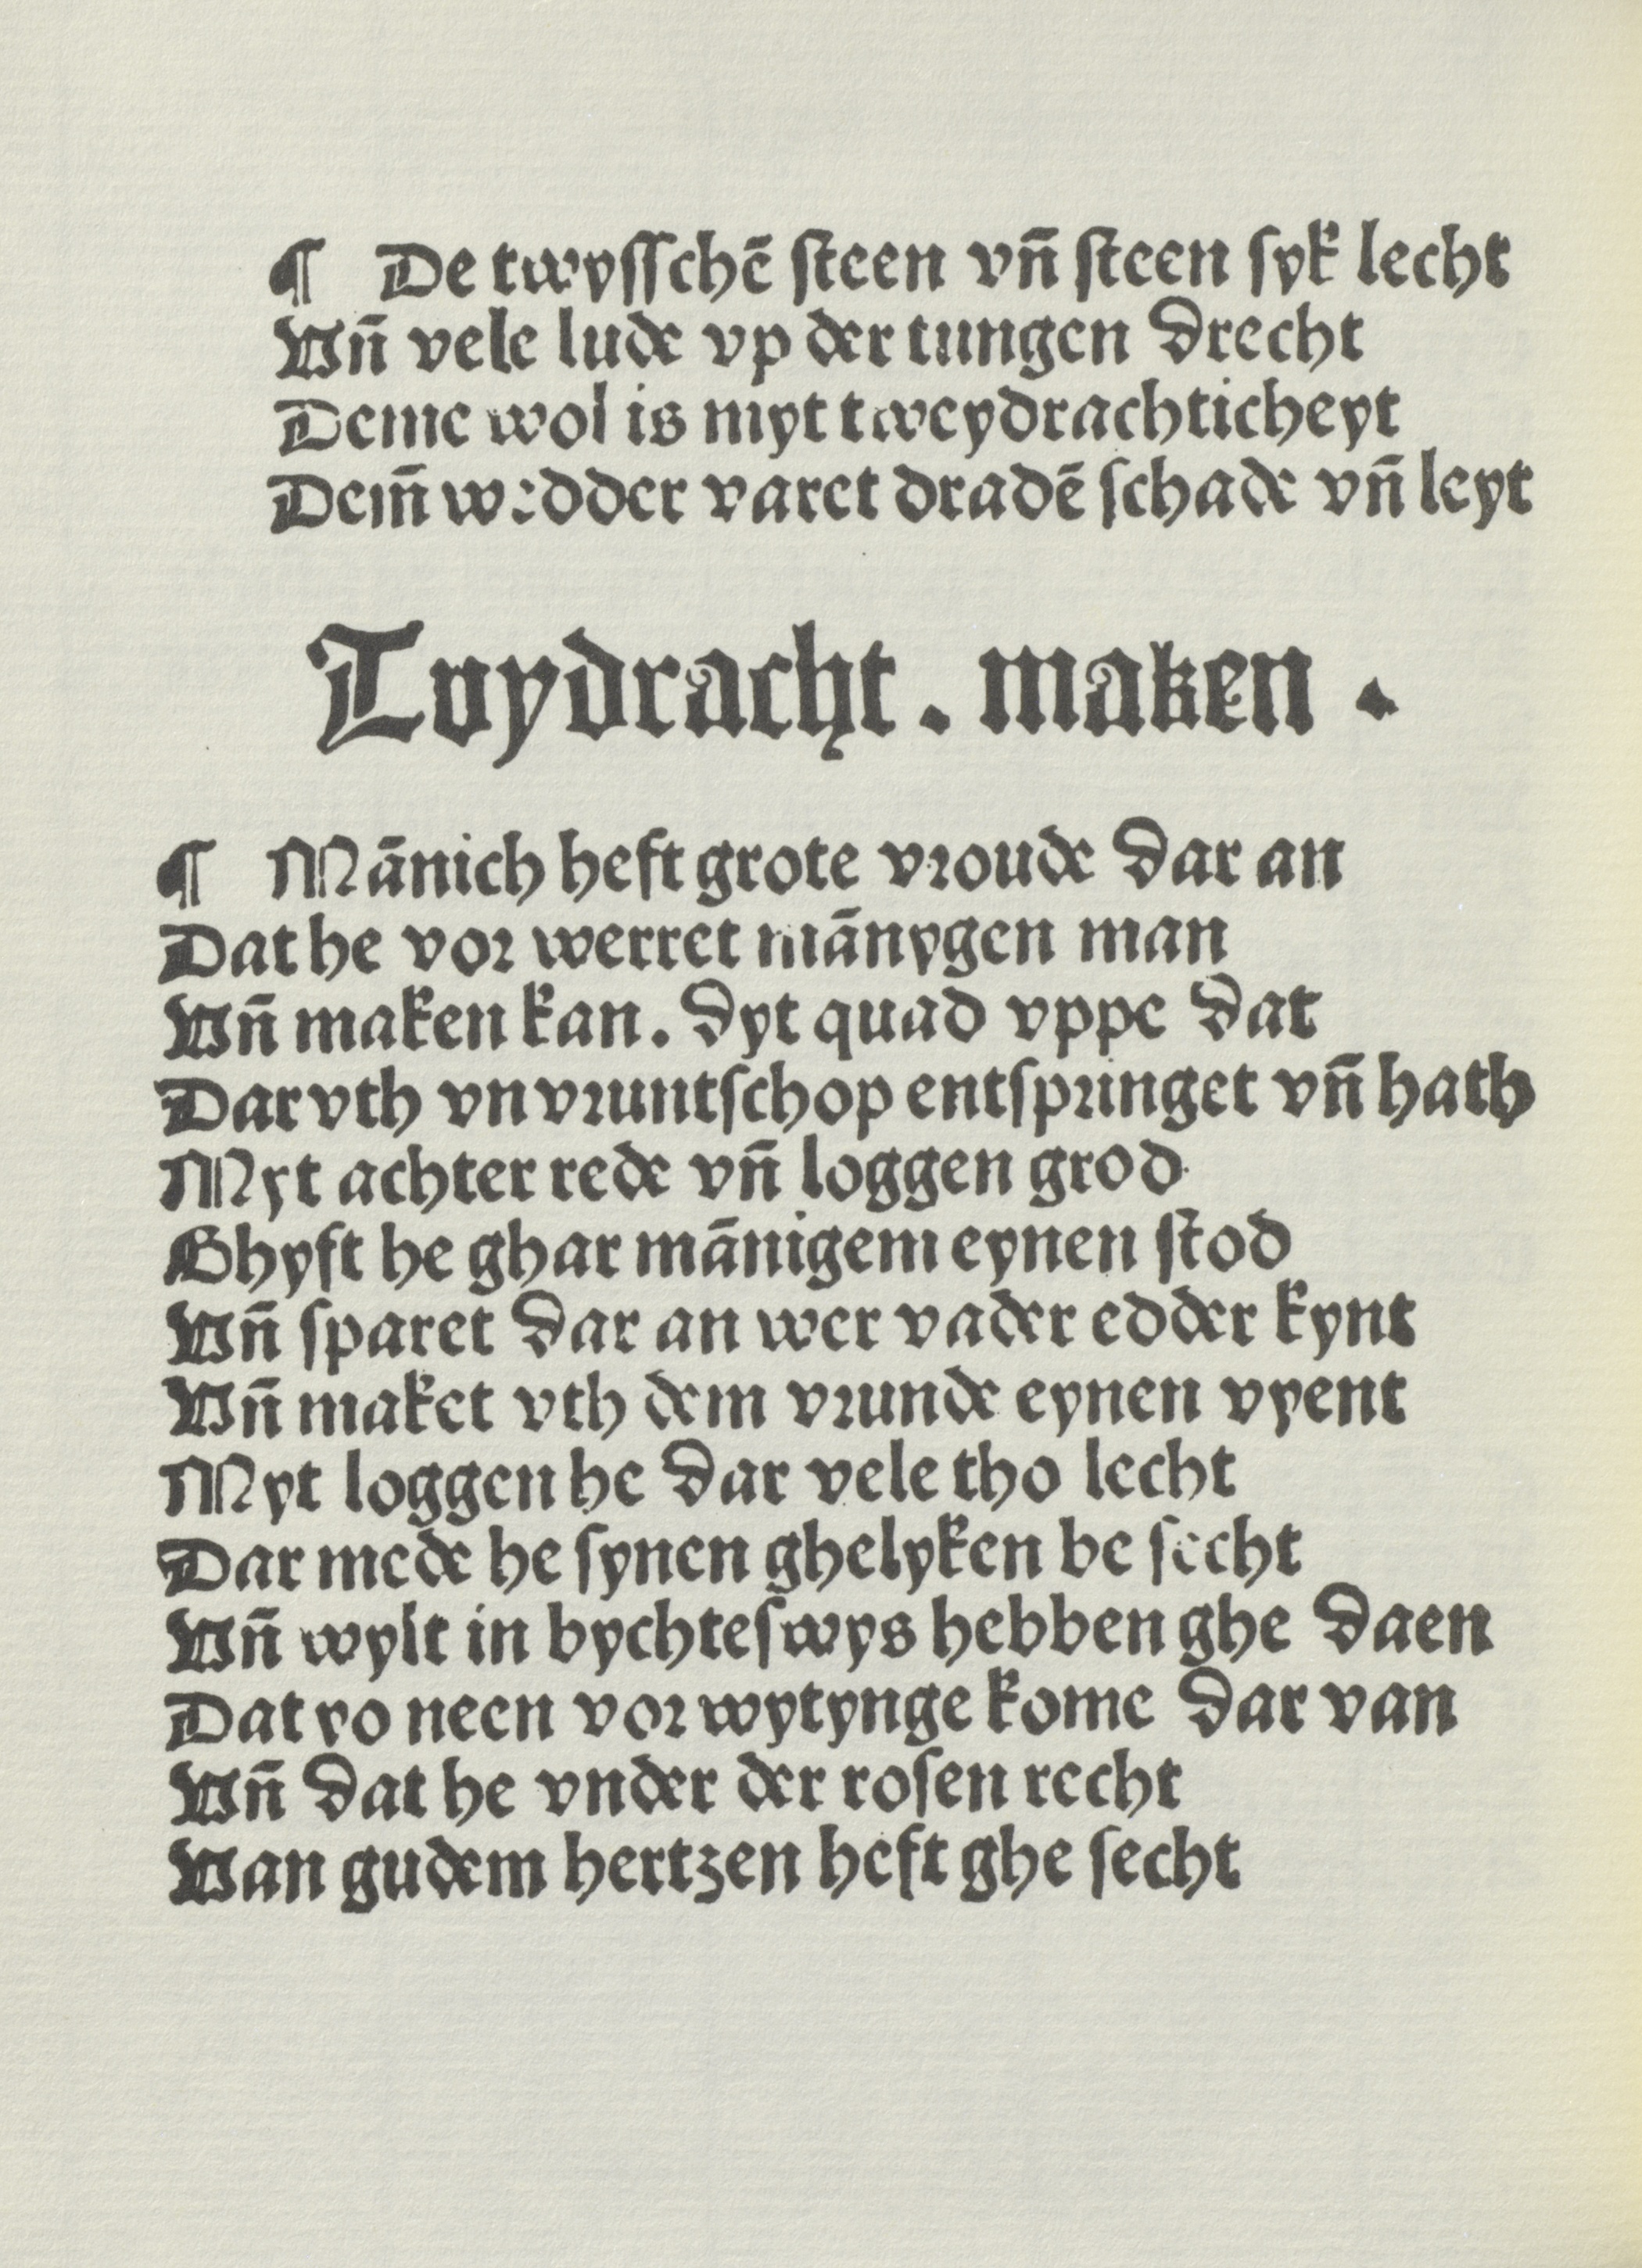 ¶ De twyſſchē ſteen vñ ſteen ſyk lecht
Vñ vele lude vp der tungen drecht
Deme wol is myt tweydrachticheyt
Dem̄ wedder varet dradē ſchade vñ leyt
Tvydracht . maken .
¶ Mānich heft grote vꝛoude dar an
Dat he voꝛ werret mānygen man
Vñ maken kan. dyt quad vppe dat
Dar vth vn vꝛuntſchop entſpꝛinget vñ hath
Myt achter rede vñ loggen grod
Ghyft he ghar mānigem eynen ſtod
Vñ ſparet dar an wer vader edder kynt
Vñ maket vth dem vꝛunde eynen vyent
Myt loggen he dar vele tho lecht
Dar mede he ſynen ghelyken be ſecht
Vñ wylt in bychteſwys hebben ghe daen
Dat yo neen voꝛ wytynge kome dar van
Vñ dat he vnder der roſen recht
Van gudem hertzen heft ghe ſecht